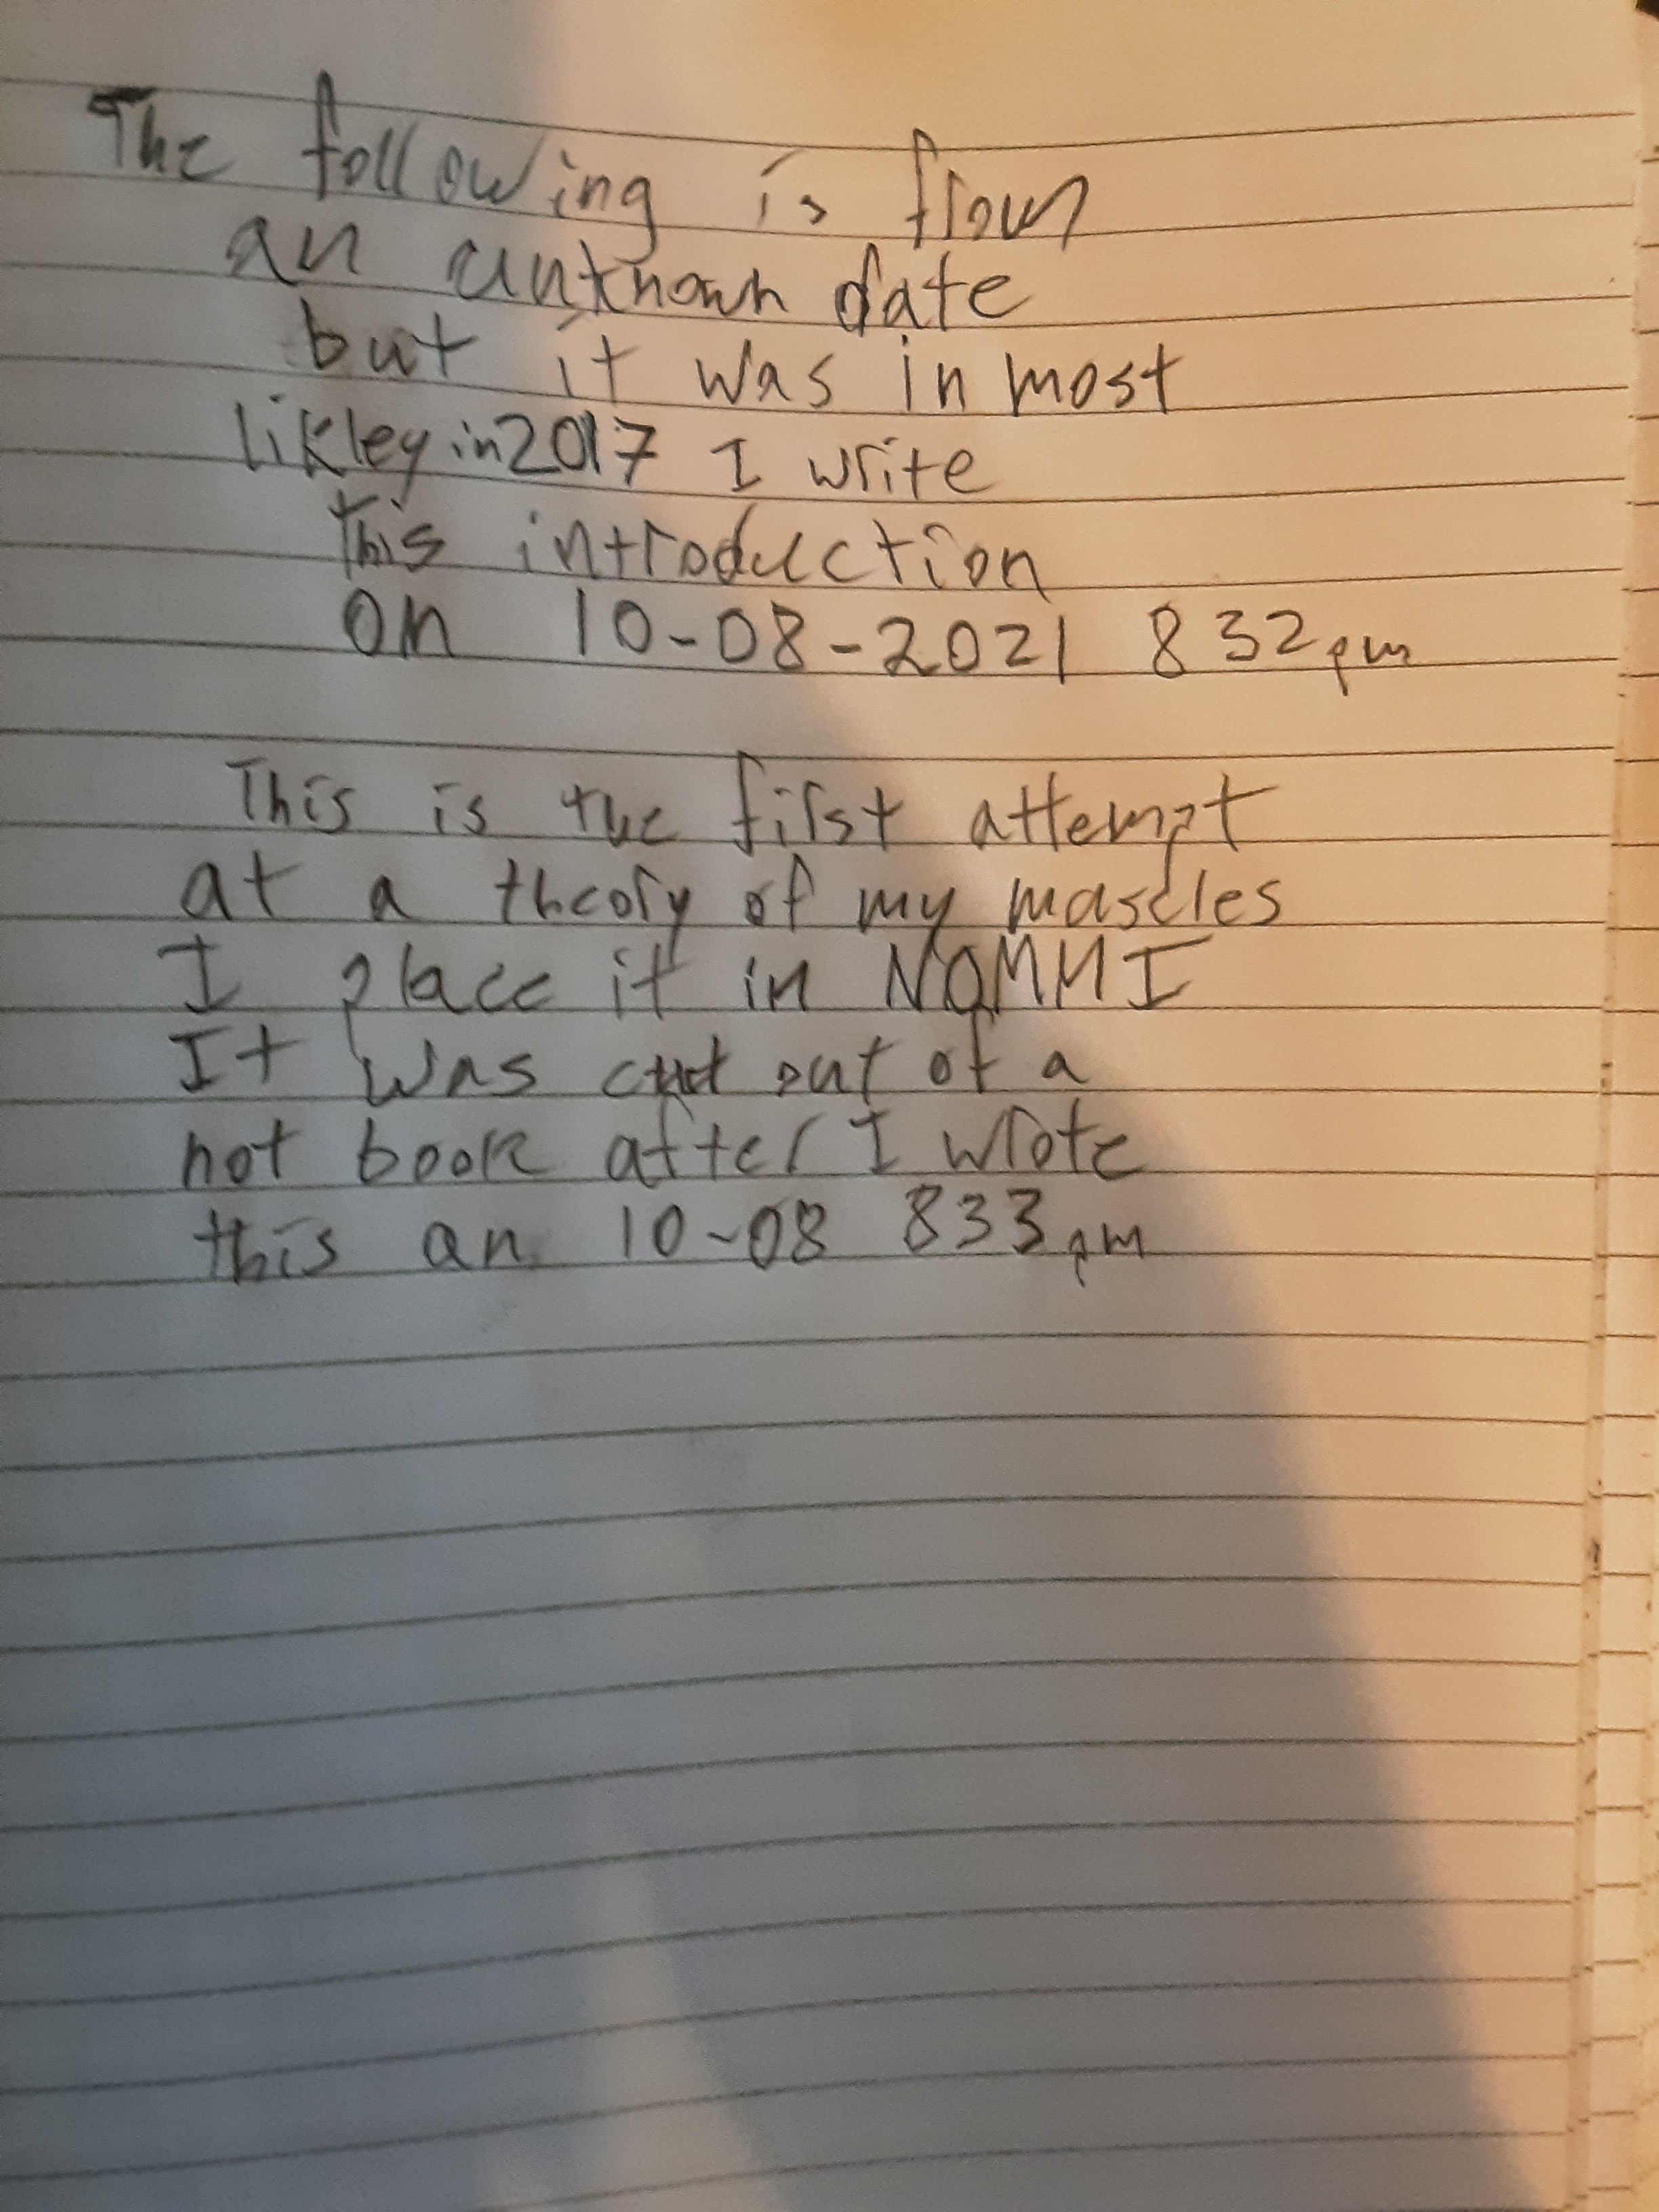 The following is from
an unknown date
but it was in most
likley in 2017 I write
this introduction
on 10-08-2021 832pm
This is the first attempt
at a theory of my muscles
I place it in NQMMI
It was cut out of a
not book after I wrote
this an 10-08 833pm